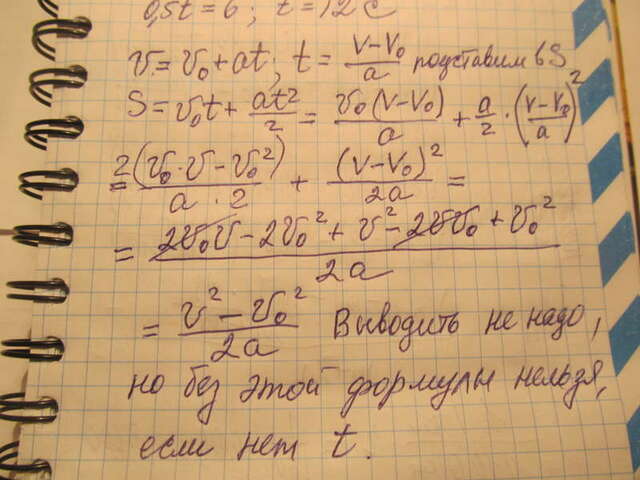 0,5t = 6 ; t = 12 c
v = v₀ + at ; t = (v – v₀)/a подставим в S
S = v₀t + at²/2 = v₀(v – v₀)/a + a/2 · ((v – v₀)/a)²
= 2(v₀·v – v₀²)/(a · 2) + (v – v₀)²/2a =
= (2v₀v – 2v₀² + v² – 2vv₀ + v₀²)/2a
= (v² – v₀²)/2a Выводить не надо,
но без этой формулы нельзя,
если нет t.